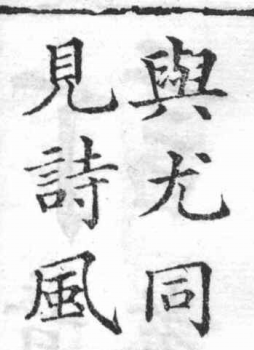 與尤同
見詩風